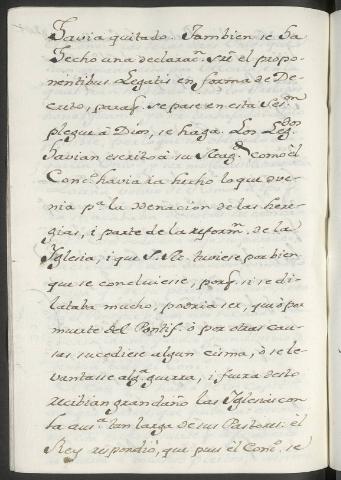 havia quitado. Tambien se ha
hecho una declaraⁿ. sre el propo-
nentibus Legatis en forma de De-
creto, paraq. se pase en esta Sesᵒⁿ
plegue à Dios, se haga. Los Legᵈᵒˢ
havian escrito à su Mag.ᵈ como èl
Concᵒ. havia ia hecho lo que
nia pª. la de las here-
gias, i parte de la reformⁿ. de la
Iglesia, i que S. tuviese por bien
que se concluiesse, porq. si se di-
lataba mucho, podria ser, que ò por
muerte del Pontif. ò por otras cau-
sas sucediese algun cisma, ò se le-
vantasse algª. guerra, i fuera desto
recibian gran daño las Iglesias con
la ausª. tan larga de sus Pastores: èl
Rey respondiò, que pues èl Concᵒ. se